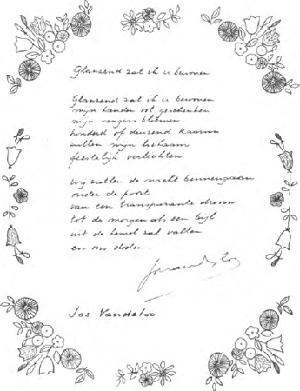 Glanzend zal ik u bewonen
Glanzend zal ik u bewonen
mijn handen vol geschenken
mijn vingers bloemen
honderd of duizend kaarsen
zullen mijn lichaam
feestelijk verlichten
wij zullen de nacht binnengaan
onder de poort
van een transparante droom
tot de morgen als een bijl
uit de hemel zal vallen
en ons
Jos Vandeloo